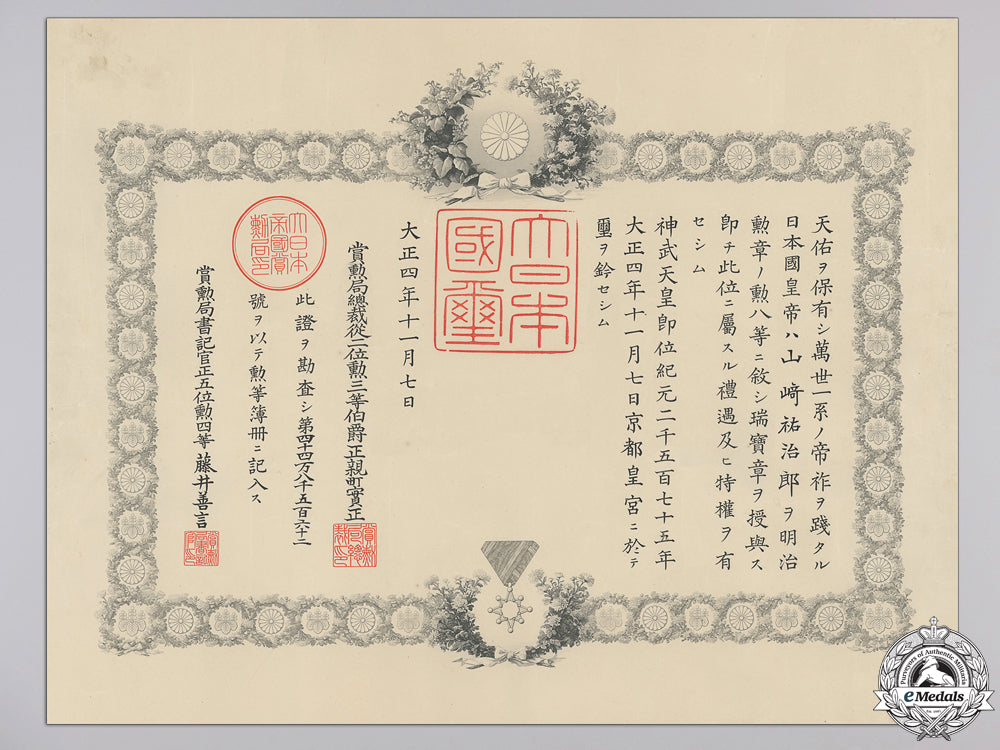 天佑ヲ保有シ萬世一系ノ帝祚ヲ踐タル
日本國皇帝ハ山﨑祐治郎ヲ明治
勲章ノ勲八等ニ敘シ瑞寶章ヲ授與ス
卽チ此位ニ屬スル禮遇及ヒ特權ヲ有
セシム
神武天皇卽位紀元二千五百七十五年
大正四年十一月七日京都皇宮ニ於テ
璽ヲ鈐セシム
大日本
國璽
大正四年十一月七日
賞勲局總裁從二位勲三等伯爵正親町實正
此證ヲ勘査シ第四十四万八千五百六十二
號ヲ以テ勲等簿冊ニ記入ス
大日本
帝國賞
勲局印
賞勲局書記官正五位勲四等藤井善言
Purveyors of Authentic Militaria
eMedals